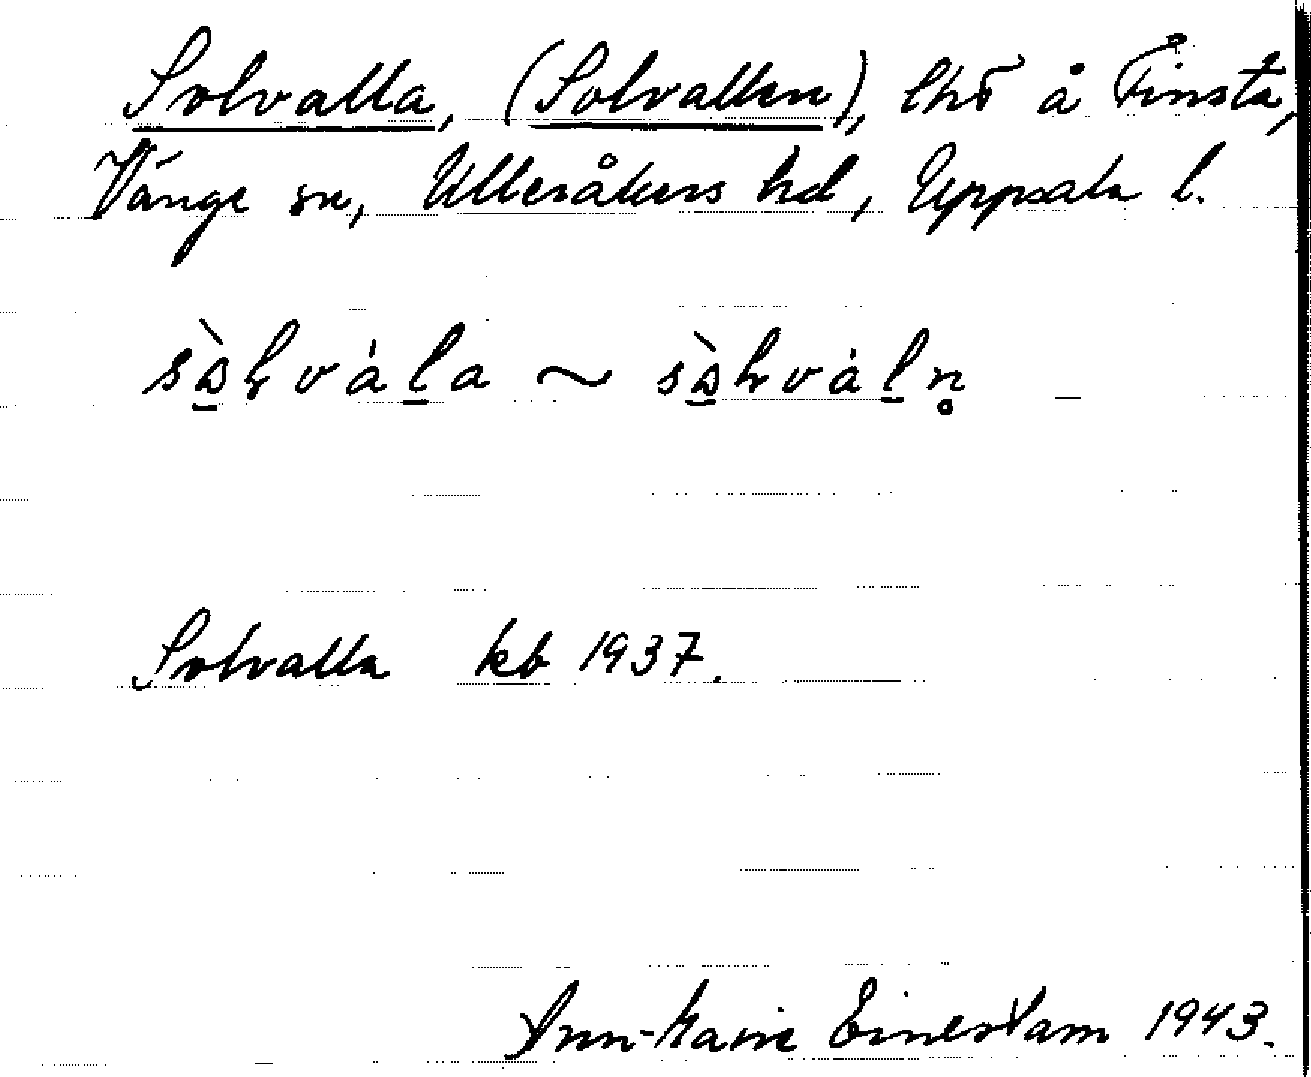 Solvalla, (Solvallen), lhö å Finsta,
Vänge sn, Ulleråkers hd, Uppsala l.
Solvalla kb 1937.
Ann-Marie Einerstam 1943.